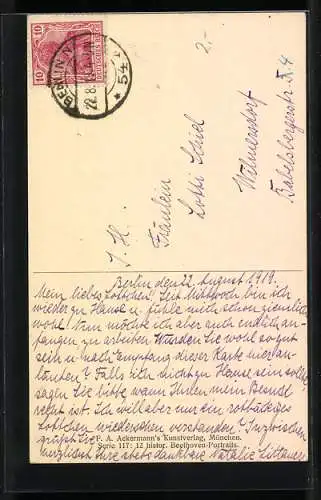 10
10
DEUTSCHES REICH
BERLIN N
22.8.19
* 54 *
2.-
I. H.
Fräulein
Lotti Schiel
Wilmersdorf
Babelsbergerstr. 4
Berlin den 22. August 1919.
Mein liebes Lottchen! Seit Mittwoch bin ich
wieder zu Hause u. fühle mich schon ziemlich
wohl! Nun möchte ich aber auch endlich an-
fangen zu arbeiten! Würden Sie wohl so gut
sein u. nach Empfang dieser Karte hier an-
läuten? Falls ich nicht zu Hause sein sollte,
sagen Sie bitte wann Ihnen mein Besuch
recht ist. Ich will aber nur ein rotbäckiges
Lottchen wiedersehen verstanden? Inzwischen
grüßt Sie
F. A. Ackermann's Kunstverlag, München.
Serie 117: 12 histor. Beethoven-Portraits.
herzlichst Ihre stets dankbare Natalie